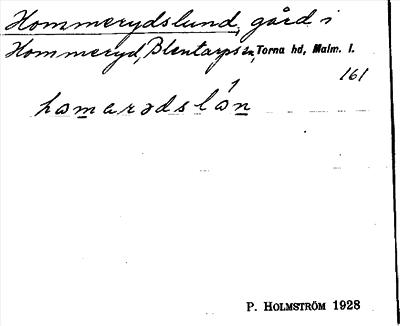 Hommerydslund, gård i
Hommeryd, Blentarps sn, Torna hd, Malm. l.
161
hωmarədslón
P. HOLMSTRÖM 1928